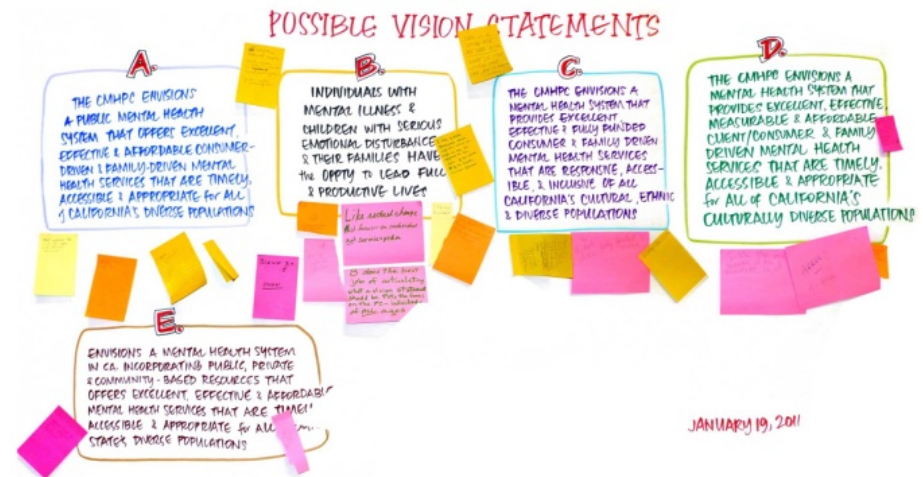 POSSIBLE VISION STATEMENTS
A.
THE CMHPC ENVISIONS
A PUBLIC MENTAL HEALTH
SYSTEM THAT OFFERS EXCELLENT,
EFFECTIVE & AFFORDABLE CONSUMER-
DRIVEN & FAMILY-DRIVEN MENTAL
HEALTH SERVICES THAT ARE TIMELY,
ACCESSIBLE & APPROPRIATE for ALL
of CALIFORNIA'S DIVERSE POPULATIONS
B.
INDIVIDUALS WITH
MENTAL ILLNESS &
CHILDREN WITH SERIOUS
EMOTIONAL DISTURBANCE
& THEIR FAMILIES HAVE
the OPPTY to LEAD FULL
& PRODUCTIVE LIVES
Like radical change
that focuses on individual
not service system
B does the best
job of articulating
what a vision statement
should be. Puts the focus
on the
C.
THE CMHPC ENVISIONS A
MENTAL HEALTH SYSTEM THAT
PROVIDES EXCELLENT
EFFECTIVE & FULLY FUNDED
CONSUMER & FAMILY DRIVEN
MENTAL HEALTH SERVICES
THAT ARE RESPONSIVE, ACCESS-
IBLE, & INCLUSIVE OF ALL
CALIFORNIA'S CULTURAL, ETHNIC
& DIVERSE POPULATIONS
D.
THE CMHPC ENVISIONS A
MENTAL HEALTH SYSTEM THAT
PROVIDES EXCELLENT, EFFECTIVE,
MEASURABLE & AFFORDABLE
CLIENT/CONSUMER & FAMILY
DRIVEN MENTAL HEALTH
SERVICES THAT ARE TIMELY,
ACCESSIBLE & APPROPRIATE
for ALL OF CALIFORNIA'S
CULTURALLY DIVERSE POPULATIONS
E.
ENVISIONS A MENTAL HEALTH SYSTEM
IN CA. INCORPORATING PUBLIC, PRIVATE
& COMMUNITY-BASED RESOURCES THAT
OFFERS EXCELLENT, EFFECTIVE & AFFORDABLE
MENTAL HEALTH SERVICES THAT ARE TIMELY
ACCESSIBLE & APPROPRIATE for ALL
STATE'S DIVERSE POPULATIONS
JANUARY 19, 2011